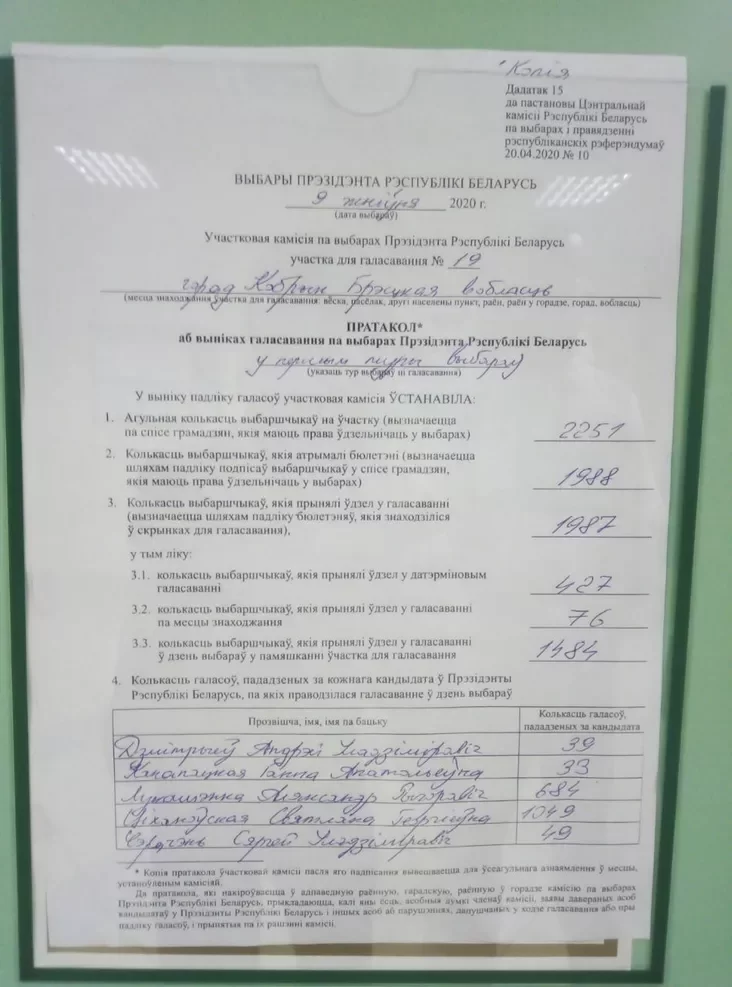 Копія
Дадатак 15
да пастановы Цэнтральнай
камісіі Рэспублікі Беларусь
па выбарах і правядзенні
рэспубліканскіх рэферэндумаў
20.04.2020 № 10
ВЫБАРЫ ПРЭЗІДЭНТА РЭСПУБЛІКІ БЕЛАРУСЬ
9 жніўня 2020 г.
(дата выбараў)
Участковая камісія па выбарах Прэзідэнта Рэспублікі Беларусь
участка для галасавання № 19
горад Кобрын Брэсцкая вобласць
(месца знаходжання ўчастка для галасавання: вёска, пасёлак, другі населены пункт, раён, раён у горадзе, горад, вобласць)
ПРАТАКОЛ*
аб выніках галасавання па выбарах Прэзідэнта Рэспублікі Беларусь
у першым туры выбараў
(указаць тур выбараў ці галасавання)
У выніку падліку галасоў участковая камісія ЎСТАНАВІЛА:
1. Агульная колькасць выбаршчыкаў на ўчастку (вызначаецца
па спісе грамадзян, якія маюць права ўдзельнічаць у выбарах) 2251
2. Колькасць выбаршчыкаў, якія атрымалі бюлетэні (вызначаецца
шляхам падліку подпісаў выбаршчыкаў у спісе грамадзян,
якія маюць права ўдзельнічаць у выбарах) 1988
3. Колькасць выбаршчыкаў, якія прынялі ўдзел у галасаванні
(вызначаецца шляхам падліку бюлетэняў, якія знаходзіліся
ў скрынках для галасавання), 1987
у тым ліку:
3.1. колькасць выбаршчыкаў, якія прынялі ўдзел у датэрміновым
галасаванні 427
3.2. колькасць выбаршчыкаў, якія прынялі ўдзел у галасаванні
па месцы знаходжання 76
3.3. колькасць выбаршчыкаў, якія прынялі ўдзел у галасаванні
ў дзень выбараў у памяшканні ўчастка для галасавання 1484
4. Колькасць галасоў, пададзеных за кожнага кандыдата ў Прэзідэнты
Рэспублікі Беларусь, па якіх праводзілася галасаванне ў дзень выбараў
Прозвішча, імя, імя па бацьку Колькасць галасоў,
пададзеных за кандыдата
Дзмітрыеў Андрэй Уладзіміравіч 39
Канапацкая Ганна Анатольеўна 33
Лукашэнка Аляксандр Рыгоравіч 684
Ціханоўская Святлана Георгіеўна 1049
Чэрачэнь Сяргей Уладзіміравіч 49
* Копія пратакола ўчастковай камісіі пасля яго падпісання вывешваецца для ўсеагульнага азнаямлення ў месцы,
устаноўленым камісіяй.
Да пратакола, які накіроўваецца ў адпаведную раённую, гарадскую, раённую ў горадзе камісію па выбарах
Прэзідэнта Рэспублікі Беларусь, прыкладаюцца, калі яны ёсць, асобныя думкі членаў камісіі, заявы давераных асоб
кандыдатаў у Прэзідэнты Рэспублікі Беларусь і іншых асоб аб парушэннях, дапушчаных у ходзе галасавання або пры
падліку галасоў, і прынятыя па іх рашэнні камісіі.